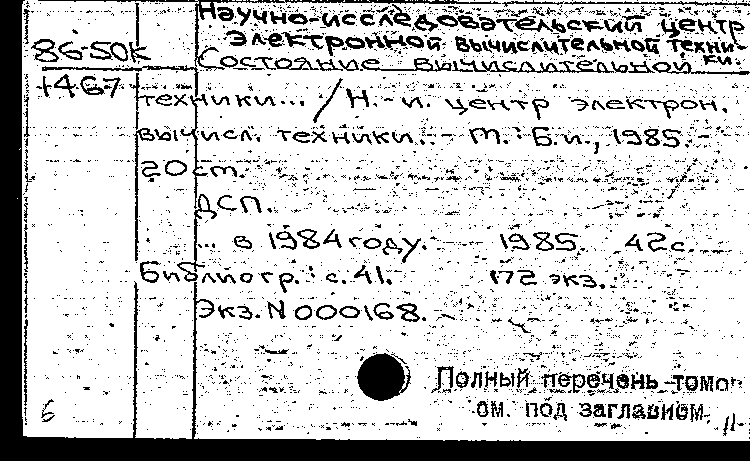 Научно-исследовательский центр
86-50К электронной вычислительной техни-
Состояние вычислительной ки.
+467 техники... / Н.-и. центр электрон.
вычисл. техники... - М.: Б.и., 1985. -
20 см.
ДСП.
... в 1984 году. - 1985. 42 с.
Библиогр.: с. 41. 172 экз.
Экз. N 000168. -
Полный перечень томов
6 см. под заглавием. 11